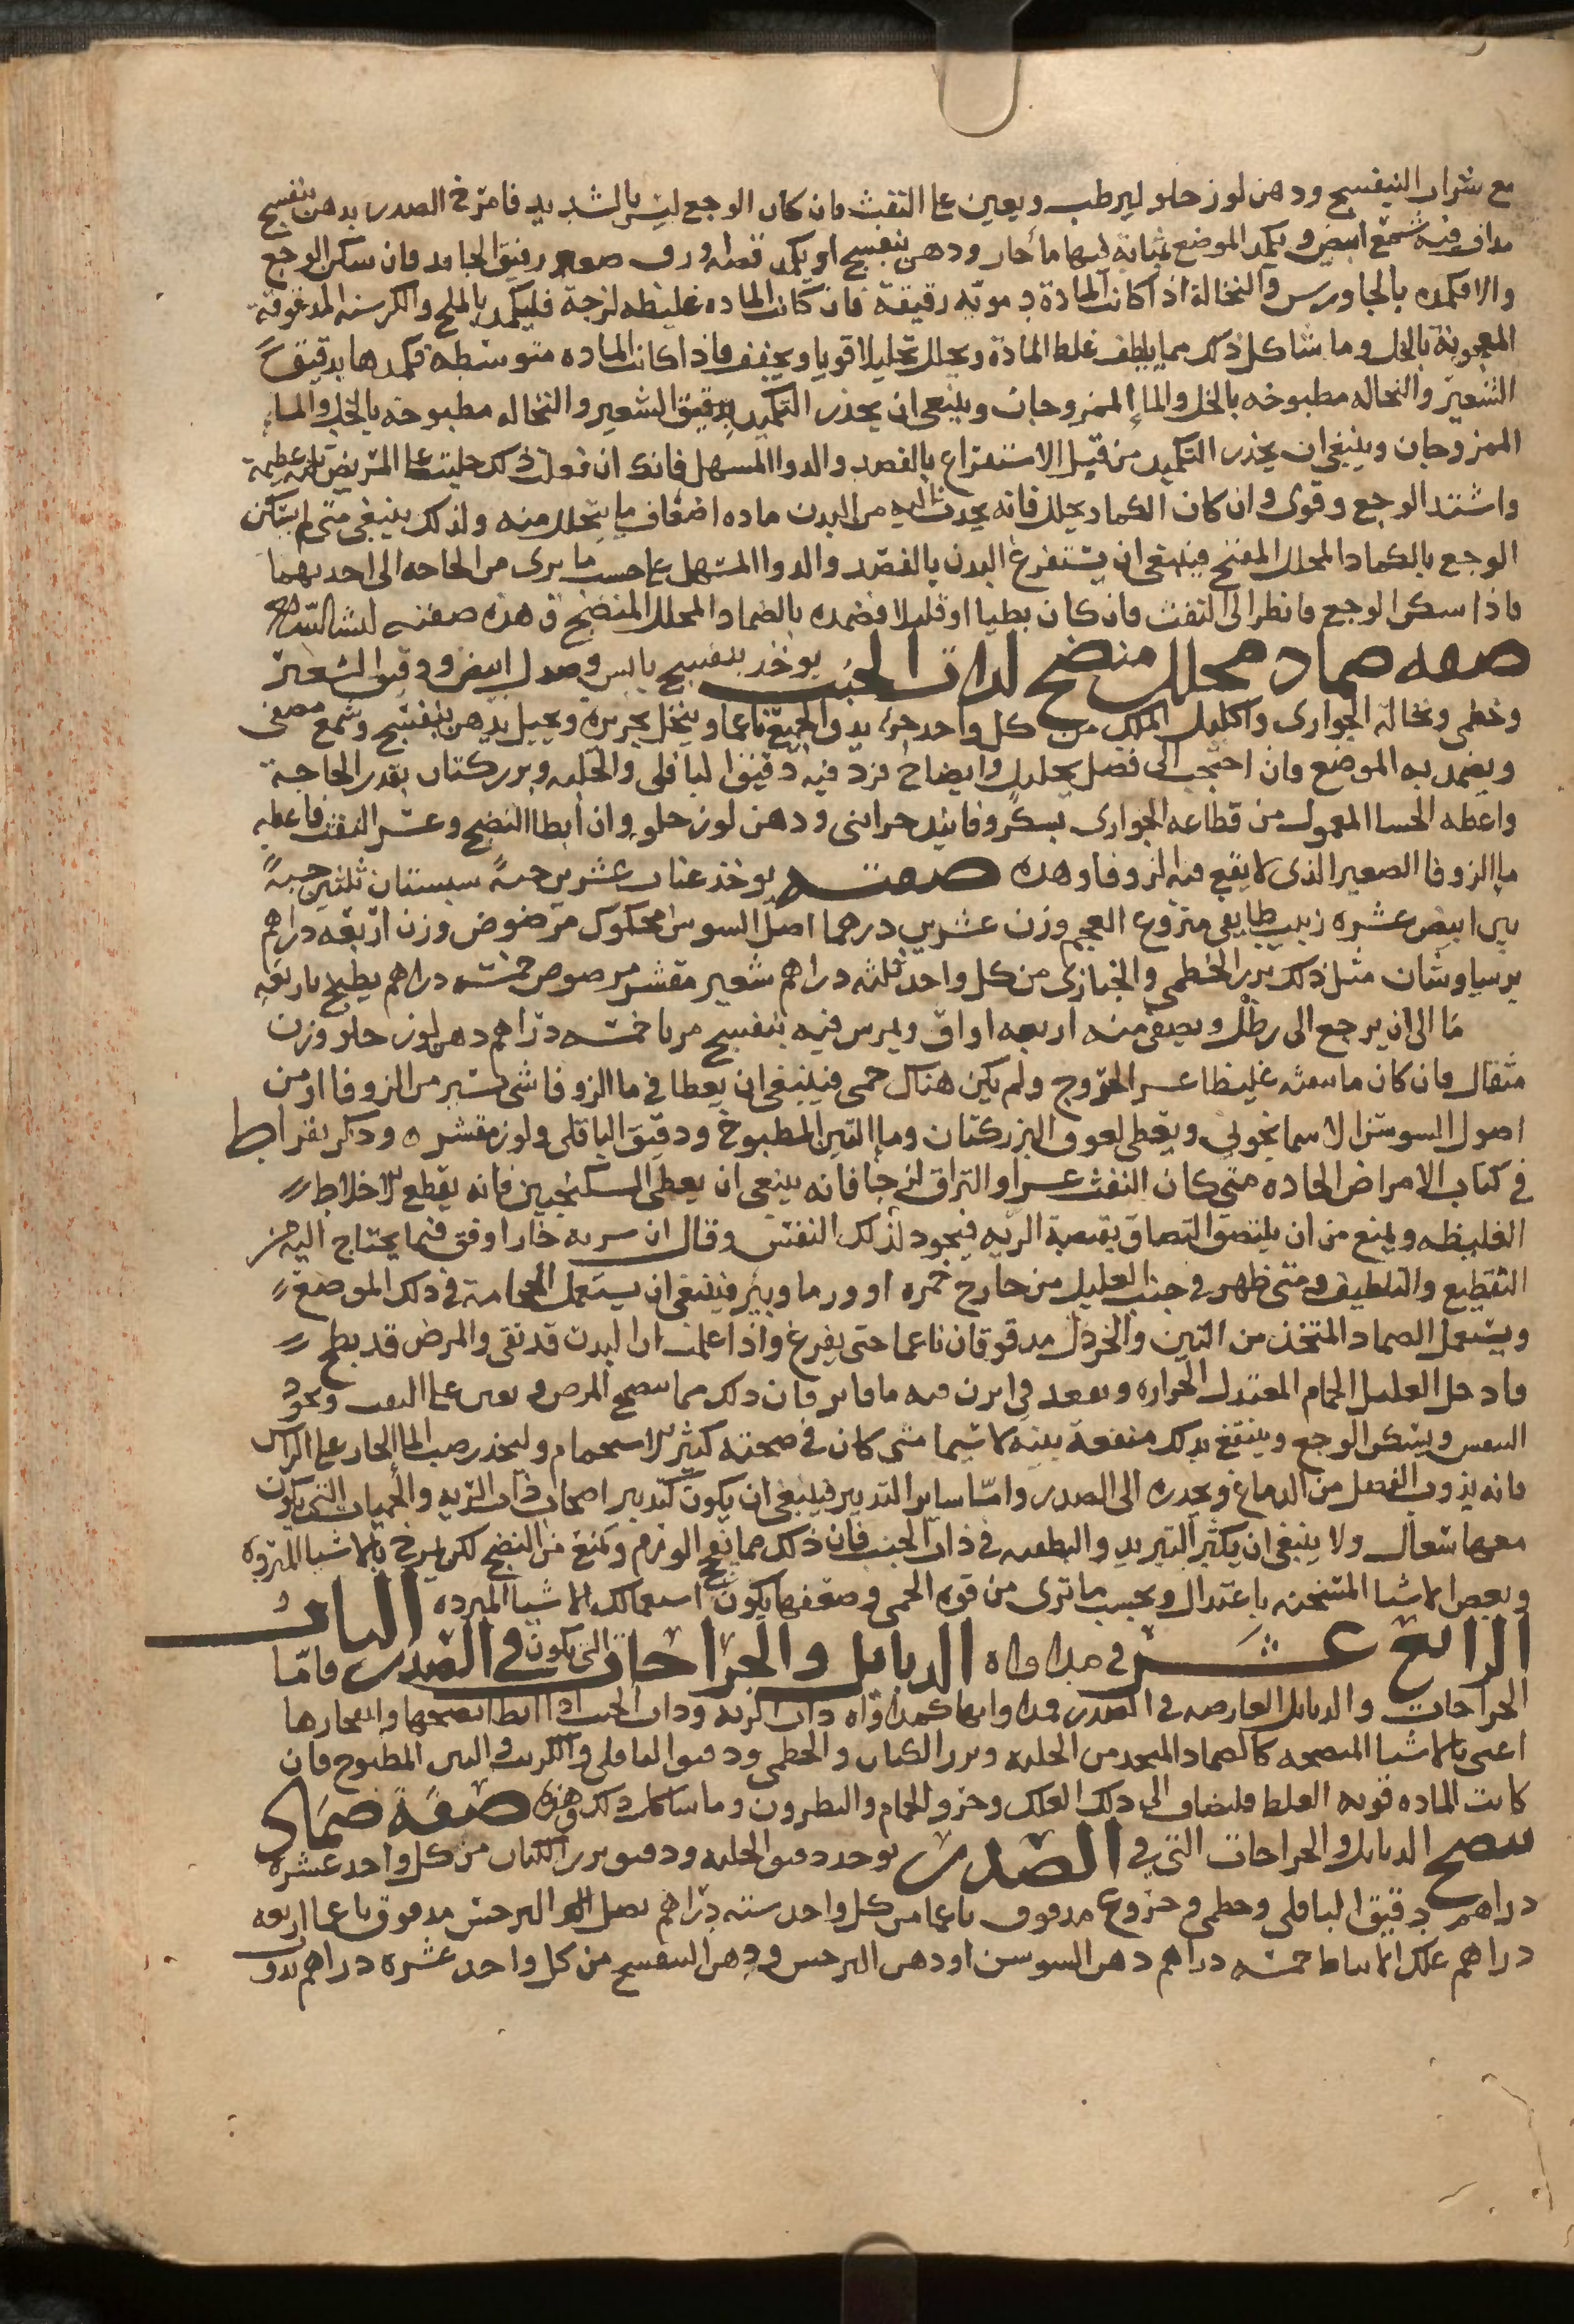 مع شراب البنفسج ودهن لوز حلو ليرطب ويعين على النفث فان كان الوجع ليس بالشديد فامرخ الصدر بدهن بنفسج
مداف فيه شمع ابيض ويكمد الموضع بمثانة فيها ما حار ودهن بنفسج او يكمد رقيق الجامد فان سكن الوجع
والا فكمده بالجاورس والنخالة اذا كانت المادة دمويه رقيقة فان كانت الماده غليظه لزجة فليكمد بالملح والكرسنه المدقوقة
المعجونة بالخل وما شاكل ذلك مما يلطف غلظ المادة ويحلل تحليلا قويا ويجفف فاذا كانت الماده متوسطه فكمدها بدقيق
الشعير والنخاله مطبوخه بالخل والما الممزوجان وينبغي ان يحذر التكميد بدقيق الشعير والنخاله مطبوخه بالخل والماء
الممزوجان وينبغي ان يحذر التكميد من قبل الاستفراغ بالفصد والدوا المسهل فانك ان فعلت ذلك جلبت على المريض بليه عظيمة
واشتد الوجع وقوى وان كان الكماد يحلل فانه يجذب اليه من البدن ماده اضعاف ما يتحلل منه ولذلك ينبغي متى لم يسكن
الوجع بالكماد المحلل المفتح فينبغي ان يستفرغ البدن بالفصد والدوا المسهل على حسب ما يرى من الحاجه الى احديهما
فاذا سكن الوجع فانظر الى النفث فان كان بطيا او قليلا فضمده بالضماد المحلل المنضج و هذه صفته ان شا الله
صفه ضماد محلل منضج لذات الجنب يوخذ بنفسج يابس وصندل ابيض ودقيق الشعير
وخطمى ونخالة الحوارى واكليل الملك من كل واحد جزء يدق الجميع ناعما وينخل بحريرة ويجبل بدهن بنفسج وشمع مصفى
ويضمد به الموضع فان احتجت الى فضل تحليل وايضاح فزد فيه دقيق الباقلى والحلبه وبزر كتان بقدر الحاجة
واعطه الحسا المعمول من قطاعه الحوارى بسكر وفانيد حرانى ودهن لوز حلو وان ابطا النضج وعسر النفث فاعطه
ما الزوفا الصغير الذى لا يقع فيه الزوفا وهذه صفته يوخذ عناب عشرين حبة سبستان ثلثين حبة
تين ابيض عشره زبيب طايفى منزوع العجم وزن عشرين درهما اصل السوس محكوك مرضوض وزن اربعه دراهم
برسياوشان مثل ذلك بزر الخطمى والخبازى من كل واحد ثلثه دراهم شعير مقشر مرضوض خمسه دراهم يطبخ باربعه
ما الى ان يرجع الى رطل ويصفى منه اربعه اواق ويمرس فيه بنفسج مربا خمسه دراهم دهن لوز حلو وزن
مثقال فان كان ما ينفثه غليظا عسر الخروج ولم يكن هناك حمى فينبغي ان يعطا في ما الزوفا شى يسير من الزوفا او من
اصول السوسن الاسمانجونى ويعطى لعوق البزركتان وما التين المطبوخ ودقيق الباقلى ولوز مقشر وذكر بقراط
في كتاب الامراض الحاده متى كان النفث عسرا والبزاق لزجا فانه ينبغي ان يعطى السكنجبين فانه يقطع الاخلاط
الغليظه ويمنع من ان يلتصق التصاق بقصبة الريه فيجود لذلك النفس وقال ان شربه حارا اوفق فيما يحتاج اليه من
التقطيع والتلطيف ومتى ظهر في جنب العليل من خارج حمره او ورم فينبغي ان يستعمل الحجامة في ذلك الموضع
ويستعمل الضماد المتخذ من التين والخردل مدقوقان ناعما حتى يفرغ واذا علمت ان البدن قد نقى والمرض قد نضج
فادخل العليل الحمام المعتدل الحراره ويقعد في ابزن فيه ما فاتر فان ذلك مما ينضج المرض و يعين على النفث ويجود
النفس ويسكن الوجع وينتفع بذلك منفعة بينه لا سيما متى كان في صحته كثير الاستحمام وليحذر صب الما الحار على الراس
فانه يذوب الفضل من الدماغ ويحدره الى الصدر واما ساير التدبير فينبغي ان يكون كتدبير اصحاب ذات الريه والحميات التي يكون
معها سعال ولا ينبغي ان يكثر التبريد والتطفيه في ذات الجنب فان ذلك مما يفجج الورم ويمنع من النضج لكن يمزج بالاشيا المبردة
وبعض الاشيا المسخنه باعتدال وبحسب ما ترى من قوه الحمى وضعفها يكون استعمالك الاشيا المبرده الباب
الرابع عشر في مداواه الدبابيل والجراحات التي يكون في الصدر فاما
الجراحات والدبابيل العارضه في الصدر فمداواتها كمداواه ذات الريه وذات الجنب اذا ابطا نضجها وانفجارها
اعنى بالاشيا المنضجه كالضماد المتخذ من الحلبه وبزر الكتان والخطمى ودقيق الباقلى والكرنب والتين المطبوخ فان
كانت الماده قويه الغلظ فليضاف الى ذلك العلك وخرو الحمام والنطرون وما شاكل ذلك وهذه صفة ضماد
ينضج الدبابيل والجراحات التي في الصدر يوخذ دقيق الحلبه ودقيق بزر الكتان من كل واحد عشره
دراهم دقيق الباقلى وخطمى وخروع مدقوق ناعما من كل واحد سته دراهم بصل النرجس مدقوق ناعما اربعه
دراهم علك الانباط خمسه دراهم دهن السوسن او دهن النرجس ودهن البنفسج من كل واحد عشره دراهم يدق